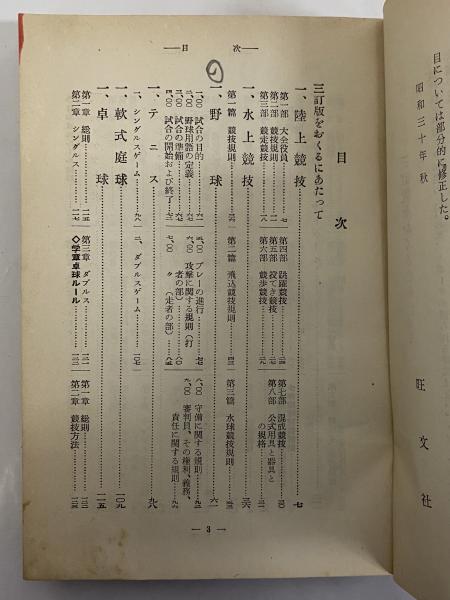 目については部分的に修正した。
昭和三十年秋
旺文社
―目 次―
目 次
三訂版をおくるにあたって
一、陸上競技……七
第一部 大会役員……七
第二部 競技規則……
第三部 競走競技……
第四部 跳躍競技……
第五部 投てき競技……
第六部 競歩競技……
第七部 混成競技……
第八部 公式用具と器具と
の規格……
一、水上競技……三六
第一篇 競技規則……
第二篇 飛込競技規則……
第三篇 水球競技規則……
一、野球……六一
一・〇〇 試合の目的……六一
二・〇〇 野球用語の定義……
三・〇〇 試合の準備……
四・〇〇 試合の開始および終了……
五・〇〇 プレーの進行……
六・〇〇 攻撃に関する規則(打
者の部)……
七・〇〇 〃 (走者の部)……
八・〇〇 守備に関する規則……
九・〇〇 審判員、その権利、義務、
責任に関する規則……
一、テニス……九八
一、シングルスゲーム……九八
二、ダブルスゲーム……一〇七
一、軟式庭球……一〇九
一、卓球……一一五
第一章 総則……一一五
第二章 シングルス……
第三章 ダブルス……
◇学童卓球ルール
第一章 総則……
第二章 競技方法……
― 3 ―